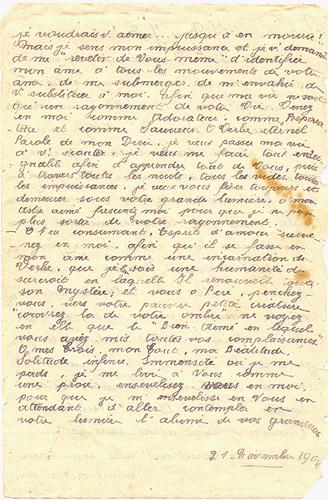 je voudrais v. aimer... jusqu'à en mourir!
Mais je sens mon impuissance et je v. demande
de me "revêtir de Vous même" d'identifier
mon âme à tous les mouvements de votre
âme, de me submerger, de m'envahir, de
v. substituer à moi, afin que ma vie ne soit
qu'un rayonnement de votre Vie. Venez
en moi comme Adorateur, comme Répara-
teur et comme Sauveur. O Verbe éternel
Parole de mon Dieu, je veux passer ma vie
à v. écouter, je veux me faire tout ensei-
gnable afin d'apprendre tout de Vous, puis
à travers toutes les nuits, tous les vides, toutes
les impuissances, je veux vous fixer toujours et
demeurer sous votre grande lumière, ô mon
astre aimé fascinez moi pour que je ne puisse
plus sortir de votre rayonnement.
O feu consumant, Esprit d'amour surve-
nez en moi, afin qu'il se fasse en
mon âme comme une incarnation du
Verbe, que je sois une humanité de
surcroît en laquelle Il renouvelle tout
son Mystère, et vous ô Père, penchez
vous vers votre pauvre petite créature
couvrez la de votre ombre ne voyez
en elle que le "Bien Aimé en lequel
vous avez mis toutes vos complaisances."
O mes Trois, mon Tout, ma Béatitude
Solitude infinie, Immensité où je me
perds, je me livre à Vous comme
une proie, ensevelissez vous en moi,
pour que je m'ensevelisse en Vous en
attendant d'aller contempler en
votre lumière l'abîme de vos grandeurs
21 Novembre 1904